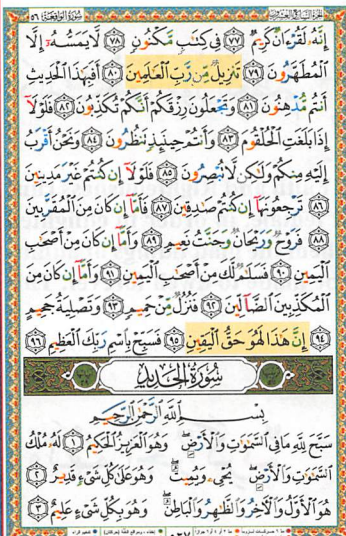 سورة الواقعة ٥٦
إِنَّهُۥ لَقُرْءَانٌ كَرِيمٌ ٧٧ فِى كِتَٰبٍ مَّكْنُونٍ ٧٨ لَّا يَمَسُّهُۥٓ إِلَّا
ٱلْمُطَهَّرُونَ ٧٩ تَنزِيلٌ مِّن رَّبِّ ٱلْعَٰلَمِينَ ٨٠ أَفَبِهَٰذَا ٱلْحَدِيثِ
أَنتُم مُّدْهِنُونَ ٨١ وَتَجْعَلُونَ رِزْقَكُمْ أَنَّكُمْ تُكَذِّبُونَ ٨٢ فَلَوْلَآ
إِذَا بَلَغَتِ ٱلْحُلْقُومَ ٨٣ وَأَنتُمْ حِينَئِذٍ تَنظُرُونَ ٨٤ وَنَحْنُ أَقْرَبُ
إِلَيْهِ مِنكُمْ وَلَٰكِن لَّا تُبْصِرُونَ ٨٥ فَلَوْلَآ إِن كُنتُمْ غَيْرَ مَدِينِينَ
٨٦ تَرْجِعُونَهَآ إِن كُنتُمْ صَٰدِقِينَ ٨٧ فَأَمَّآ إِن كَانَ مِنَ ٱلْمُقَرَّبِينَ
٨٨ فَرَوْحٌ وَرَيْحَانٌ وَجَنَّتُ نَعِيمٍ ٨٩ وَأَمَّآ إِن كَانَ مِنْ أَصْحَٰبِ
ٱلْيَمِينِ ٩٠ فَسَلَٰمٌ لَّكَ مِنْ أَصْحَٰبِ ٱلْيَمِينِ ٩١ وَأَمَّآ إِن كَانَ مِنَ
ٱلْمُكَذِّبِينَ ٱلضَّآلِّينَ ٩٢ فَنُزُلٌ مِّنْ حَمِيمٍ ٩٣ وَتَصْلِيَةُ جَحِيمٍ
٩٤ إِنَّ هَٰذَا لَهُوَ حَقُّ ٱلْيَقِينِ ٩٥ فَسَبِّحْ بِٱسْمِ رَبِّكَ ٱلْعَظِيمِ ٩٦
سُورَةُ الحَدِيدِ
بِسْمِ ٱللَّهِ ٱلرَّحْمَٰنِ ٱلرَّحِيمِ
سَبَّحَ لِلَّهِ مَا فِى ٱلسَّمَٰوَٰتِ وَٱلْأَرْضِ وَهُوَ ٱلْعَزِيزُ ٱلْحَكِيمُ ١ لَهُۥ مُلْكُ
ٱلسَّمَٰوَٰتِ وَٱلْأَرْضِ يُحْىِۦ وَيُمِيتُ وَهُوَ عَلَىٰ كُلِّ شَىْءٍ قَدِيرٌ ٢
هُوَ ٱلْأَوَّلُ وَٱلْءَاخِرُ وَٱلظَّٰهِرُ وَٱلْبَاطِنُ وَهُوَ بِكُلِّ شَىْءٍ عَلِيمٌ ٣